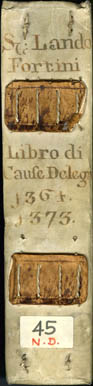 Sr. Lando
Fortini
Libro di
Cause Deleg
1364.
1373.
45
N.D.